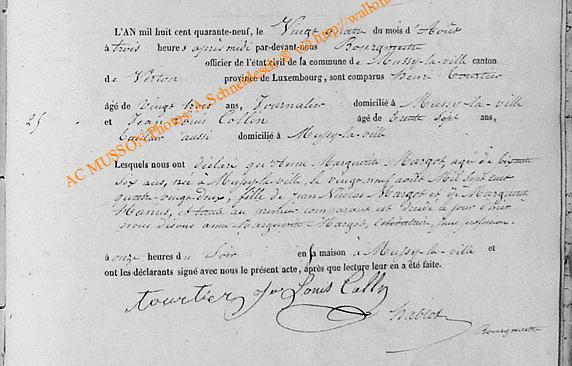 L'AN mil huit cent quarante-neuf, le Vingt quatre du mois d'Août
à trois heures après midi par-devant-nous Bourgmestre
officier de l'état civil de la commune de Mussy-la-ville canton
de Virton province de Luxembourg, sont comparus henri tourtier
25
âgé de vingt trois ans, Journalier domicilié à Mussy-la-ville
et Jean Louis Collin âgé de trente sept ans,
aussi domicilié à Mussy-la-ville
Lesquels nous ont déclaré qu'Anne Marguerite Margot, agée de soixante
six ans, née à Mussy-la-ville, le vingt neuf août Mil Sept cent
quatre-vingt-deux, fille de jean Nicolas Margot et de Marguerite
et tante au premier comparant est
nous disons anne Marguerite Margot, célibataire, sans profession.
à onze heures du Soir en sa maison à Mussy-la-ville et
ont les déclarants signé avec nous le présent acte, après que lecture leur en a été faite.
tourtier Jn Louis Collin
Bourgmestre
AC MUSSON Photos: A. Schneidesch @ cg http://wallon